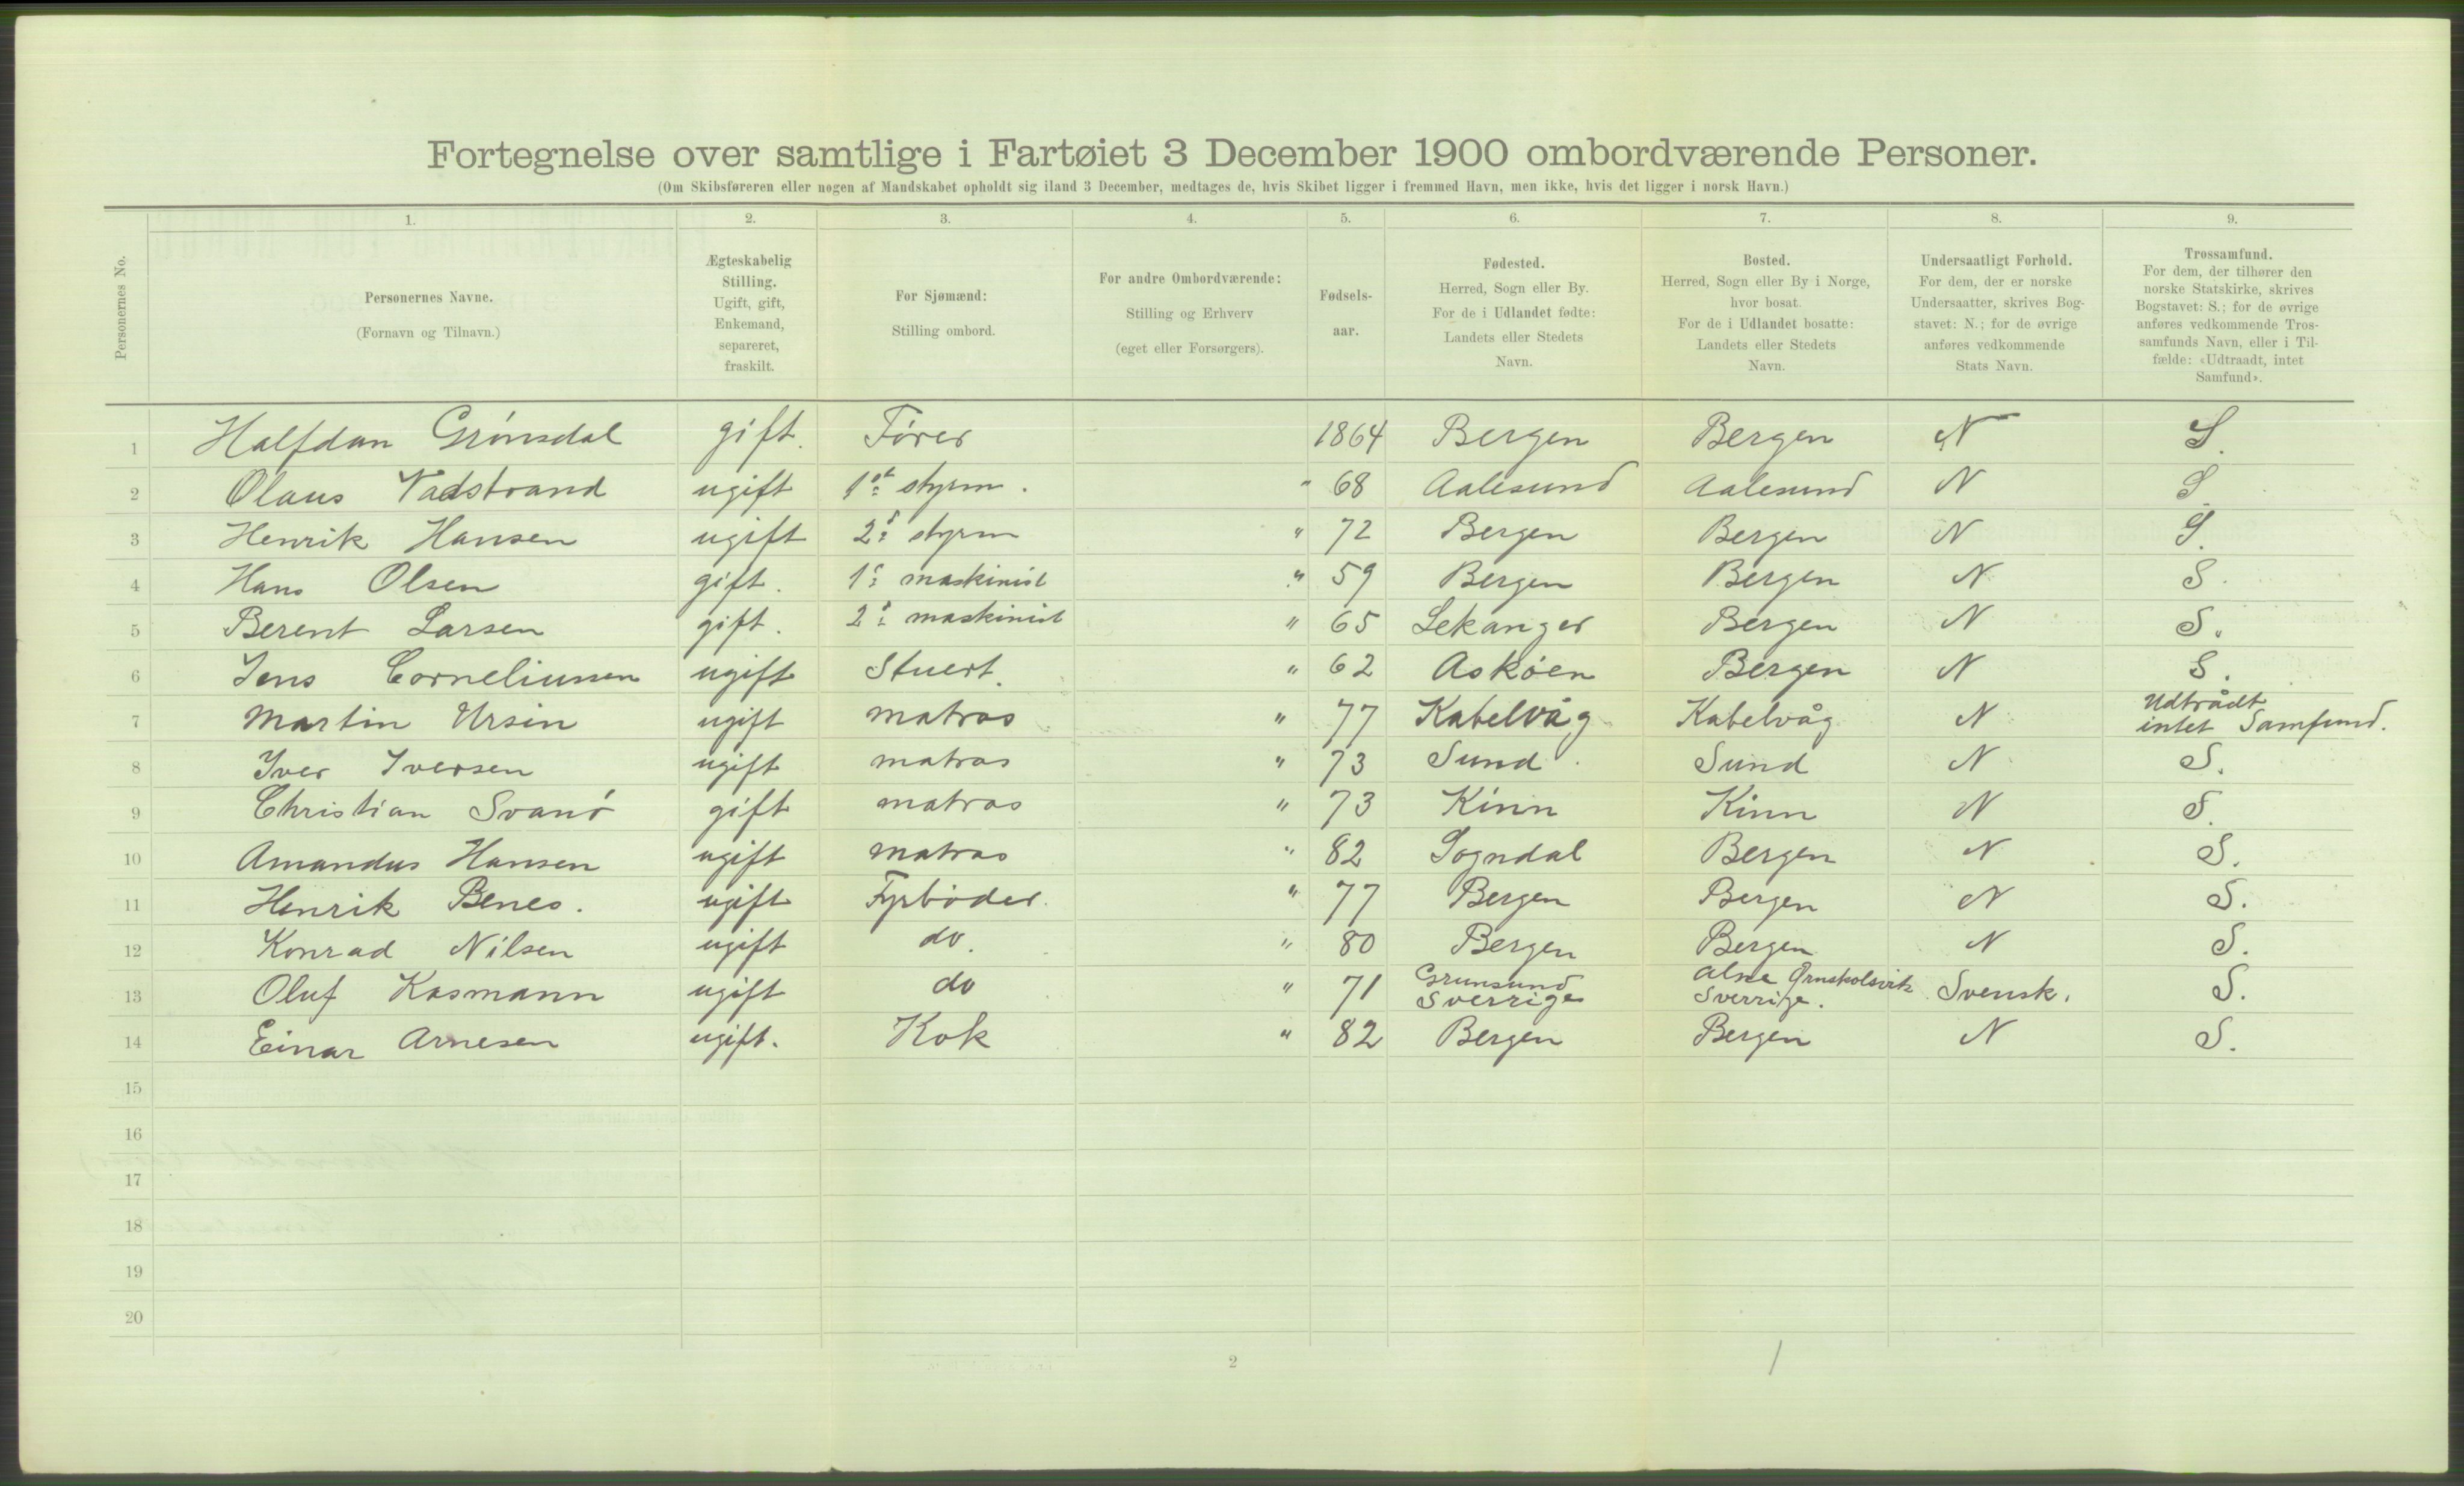 Fortegnelse over samtlige i Fartøiet 3 December 1900 ombordværende Personer.
(Om Skibsføreren eller nogen af Mandskabet opholdt sig iland 3 December, medtages de, hvis Skibet ligger i fremmed Havn, men ikke, hvis det ligger i norsk Havn.)
1. 2. 3. 4. 5. 6. 7. 8. 9.
Personernes No.
Personernes Navne.
(Fornavn og Tilnavn.)
Ægteskabelig
Stilling.
Ugift, gift,
Enkemand,
separeret,
fraskilt.
For Sjømænd:
Stilling ombord.
For andre Ombordværende:
Stilling og Erhverv
(eget eller Forsørgers).
Fødsels-
aar.
Fødested.
Herred, Sogn eller By.
For de i Udlandet fødte:
Landets eller Stedets
Navn.
Bosted.
Herred, Sogn eller By i Norge,
hvor bosat.
For de i Udlandet bosatte:
Landets eller Stedets
Navn.
Undersaatligt Forhold.
For dem, der er norske
Undersaatter, skrives Bog-
stavet: N.; for de øvrige
anføres vedkommende
Stats Navn.
Trossamfund.
For dem, der tilhører den
norske Statskirke, skrives
Bogstavet: S.; for de øvrige
anføres vedkommende Tros-
samfunds Navn, eller i Til-
fælde: «Udtraadt, intet
Samfund».
1 Halfdan Grónsdal gift. Fórer 1864 Bergen Bergen N S.
2 Olaus Vadstrand ugift 1st styrm. " 68 Aalesund Aalesund N S.
3 Henrik Hansen ugift 2: styrm " 72 Bergen Bergen N S.
4 Hans Olsen gift. 1: maskinist " 59 Bergen Bergen N S.
5 Berent Larsen gift. 2: maskinist " 65 Lekanger Bergen N S.
6 Jens Corneliussen ugift Stuert. " 62 Askóen Bergen N S.
7 Martin Ursin ugift matros " 77 Kabelvåg Kabelvåg N Udtrådt
intet Samfund.
8 Iver Iversen ugift matros " 73 Sund. Sund N S.
9 Christian Svanó gift matros " 73 Kinn Kinn N S.
10 Amandus Hansen ugift matros " 82 Sogndal Bergen N S.
11 Henrik Benes. ugift Fyrbóder. " 77 Bergen Bergen N S.
12 Konrad Nilsen ugift do. " 80 Bergen Bergen N S.
13 Oluf Kasmann ugift do " 71 Grunsund Alne Órnskolsvik Svensk. S.
Sverrige Sverrige.
14 Einar Arnesen ugift. Kok " 82 Bergen Bergen N S.
15
16
17
18
19
20
2